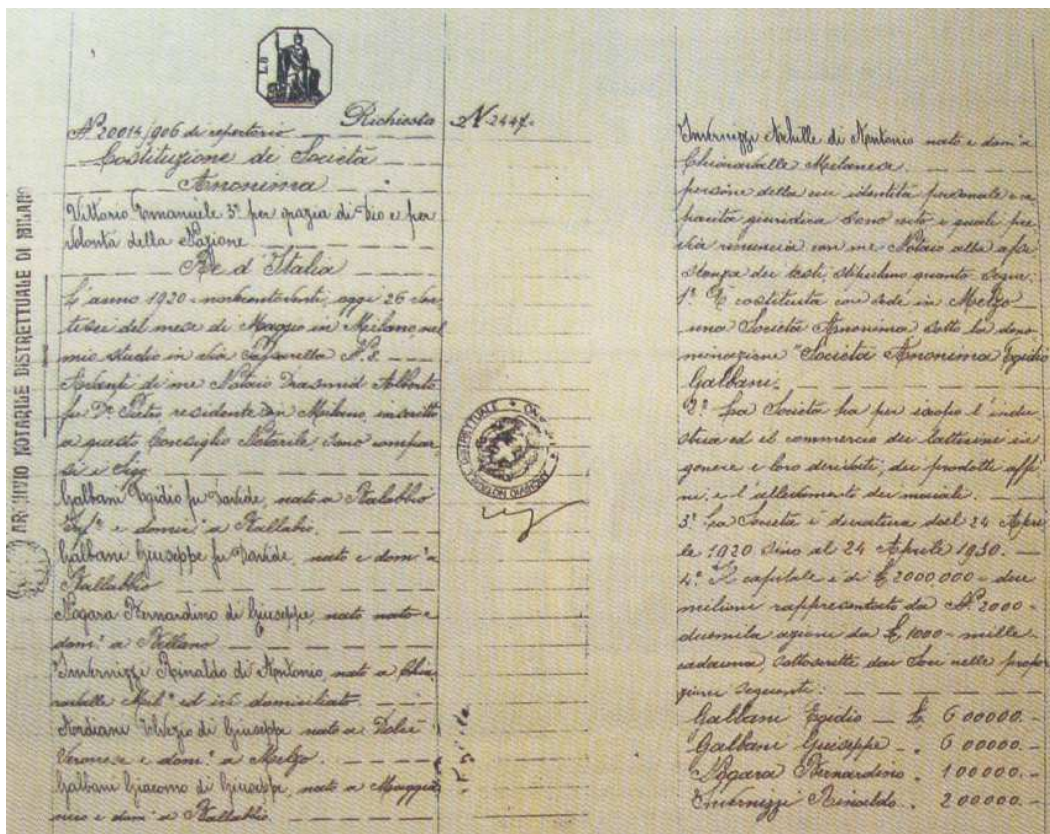 N° 20014/906 di repertorio Richiesta N° 2447.
Costituzione di Società
Anonima
Vittorio Emanuele 3° per grazia di Dio e per
Volontà della Nazione
Re d'Italia
L'anno 1920 - oggi 26
del mese di Maggio in Milano, nel
mio studio in via N. 8.
di me Notaio Alberto
fu Dr Pietro residente in Milano, inscritto
a questo Consiglio Notarile, sono compar
si i Sigg
Galbani Egidio fu Davide, nato a Ballabbio
e domic° a Ballabio.
Galbani Giuseppe fu Davide, nato e dom° a
Ballabbio
Nogara Bernardino di Giuseppe, nato nato e
dom° a Bellano
Invernizzi Rinaldo di Antonio, nato a Chia
ravalle Mil° ed ivi domiciliato.
di Giuseppe nato a Dolcè
Veronese e dom° a Melzo.
Galbani Giacomo di Giuseppe, nato a Maggia
nico e dom° a Ballabbio.
ARCHIVIO NOTARILE DISTRETTUALE DI MILANO
Invernizzi Achille di Antonio nato e dom° a
Chiaravalle Milanese.
persone della cui identità personale e ca
pacità giuridica sono certo e quali pre
via rinuncia con me Notaio alla assi
stenza dei testi, stipulano quanto segue:
1° È costituita con sede in Melzo
una Società Anonima sotto la deno
minazione "Società Anonima Egidio
Galbani.
2° La Società ha per iscopo l'indu
stria ed il commercio dei latticini in
genere e loro derivati, dei prodotti affi
ni, e l'allevamento dei maiali.
3° La Società è duratura dal 24 Apri
le 1920 sino al 24 Aprile 1950.
4° Il capitale è di £ 2000,000 - due
milioni rappresentato da N° 2000 -
duemila azioni da £ 1000 - mille
cadauna, sottoscritte dai Soci nelle propor
zioni seguenti:
Galbani Egidio — £ 600000.-
Galbani Giuseppe - . 600000.-
Nogara Bernardino . 100000.-
Invernizzi Rinaldo . 200000.-